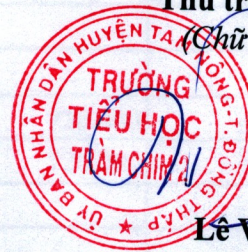 Thủ tr
(Chữ
ỦY BAN NHÂN DÂN HUYỆN TAM NÔNG-T.ĐỒNG THÁP
TRƯỜNG
TIỂU HỌC
TRÀM CHIM 2
Lê V